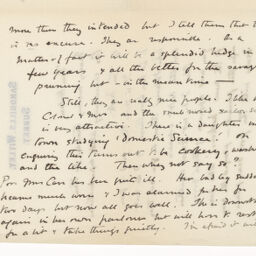 more than they intended but I tell them that
is no excuse. They are responsible. As a
matter of fact it will be a splendid hedge in
few years & all the better for the savage
pruning but – in the mean time —
Still, they are really nice people. I like
& Mrs and the
is very attractive. There is a daughter in
town studying "Domestic Science". On
enquiry this turns out to be cookery,
and the like. Then why not say so?
Poor Mrs Carr has been quite ill. Her bad leg
became much worse & I was alarmed for her for
two days but now all goes well. She is downstairs
again in her own parlour but will have to rest
for a bit & take things quietly. I'm afraid it
SURREY